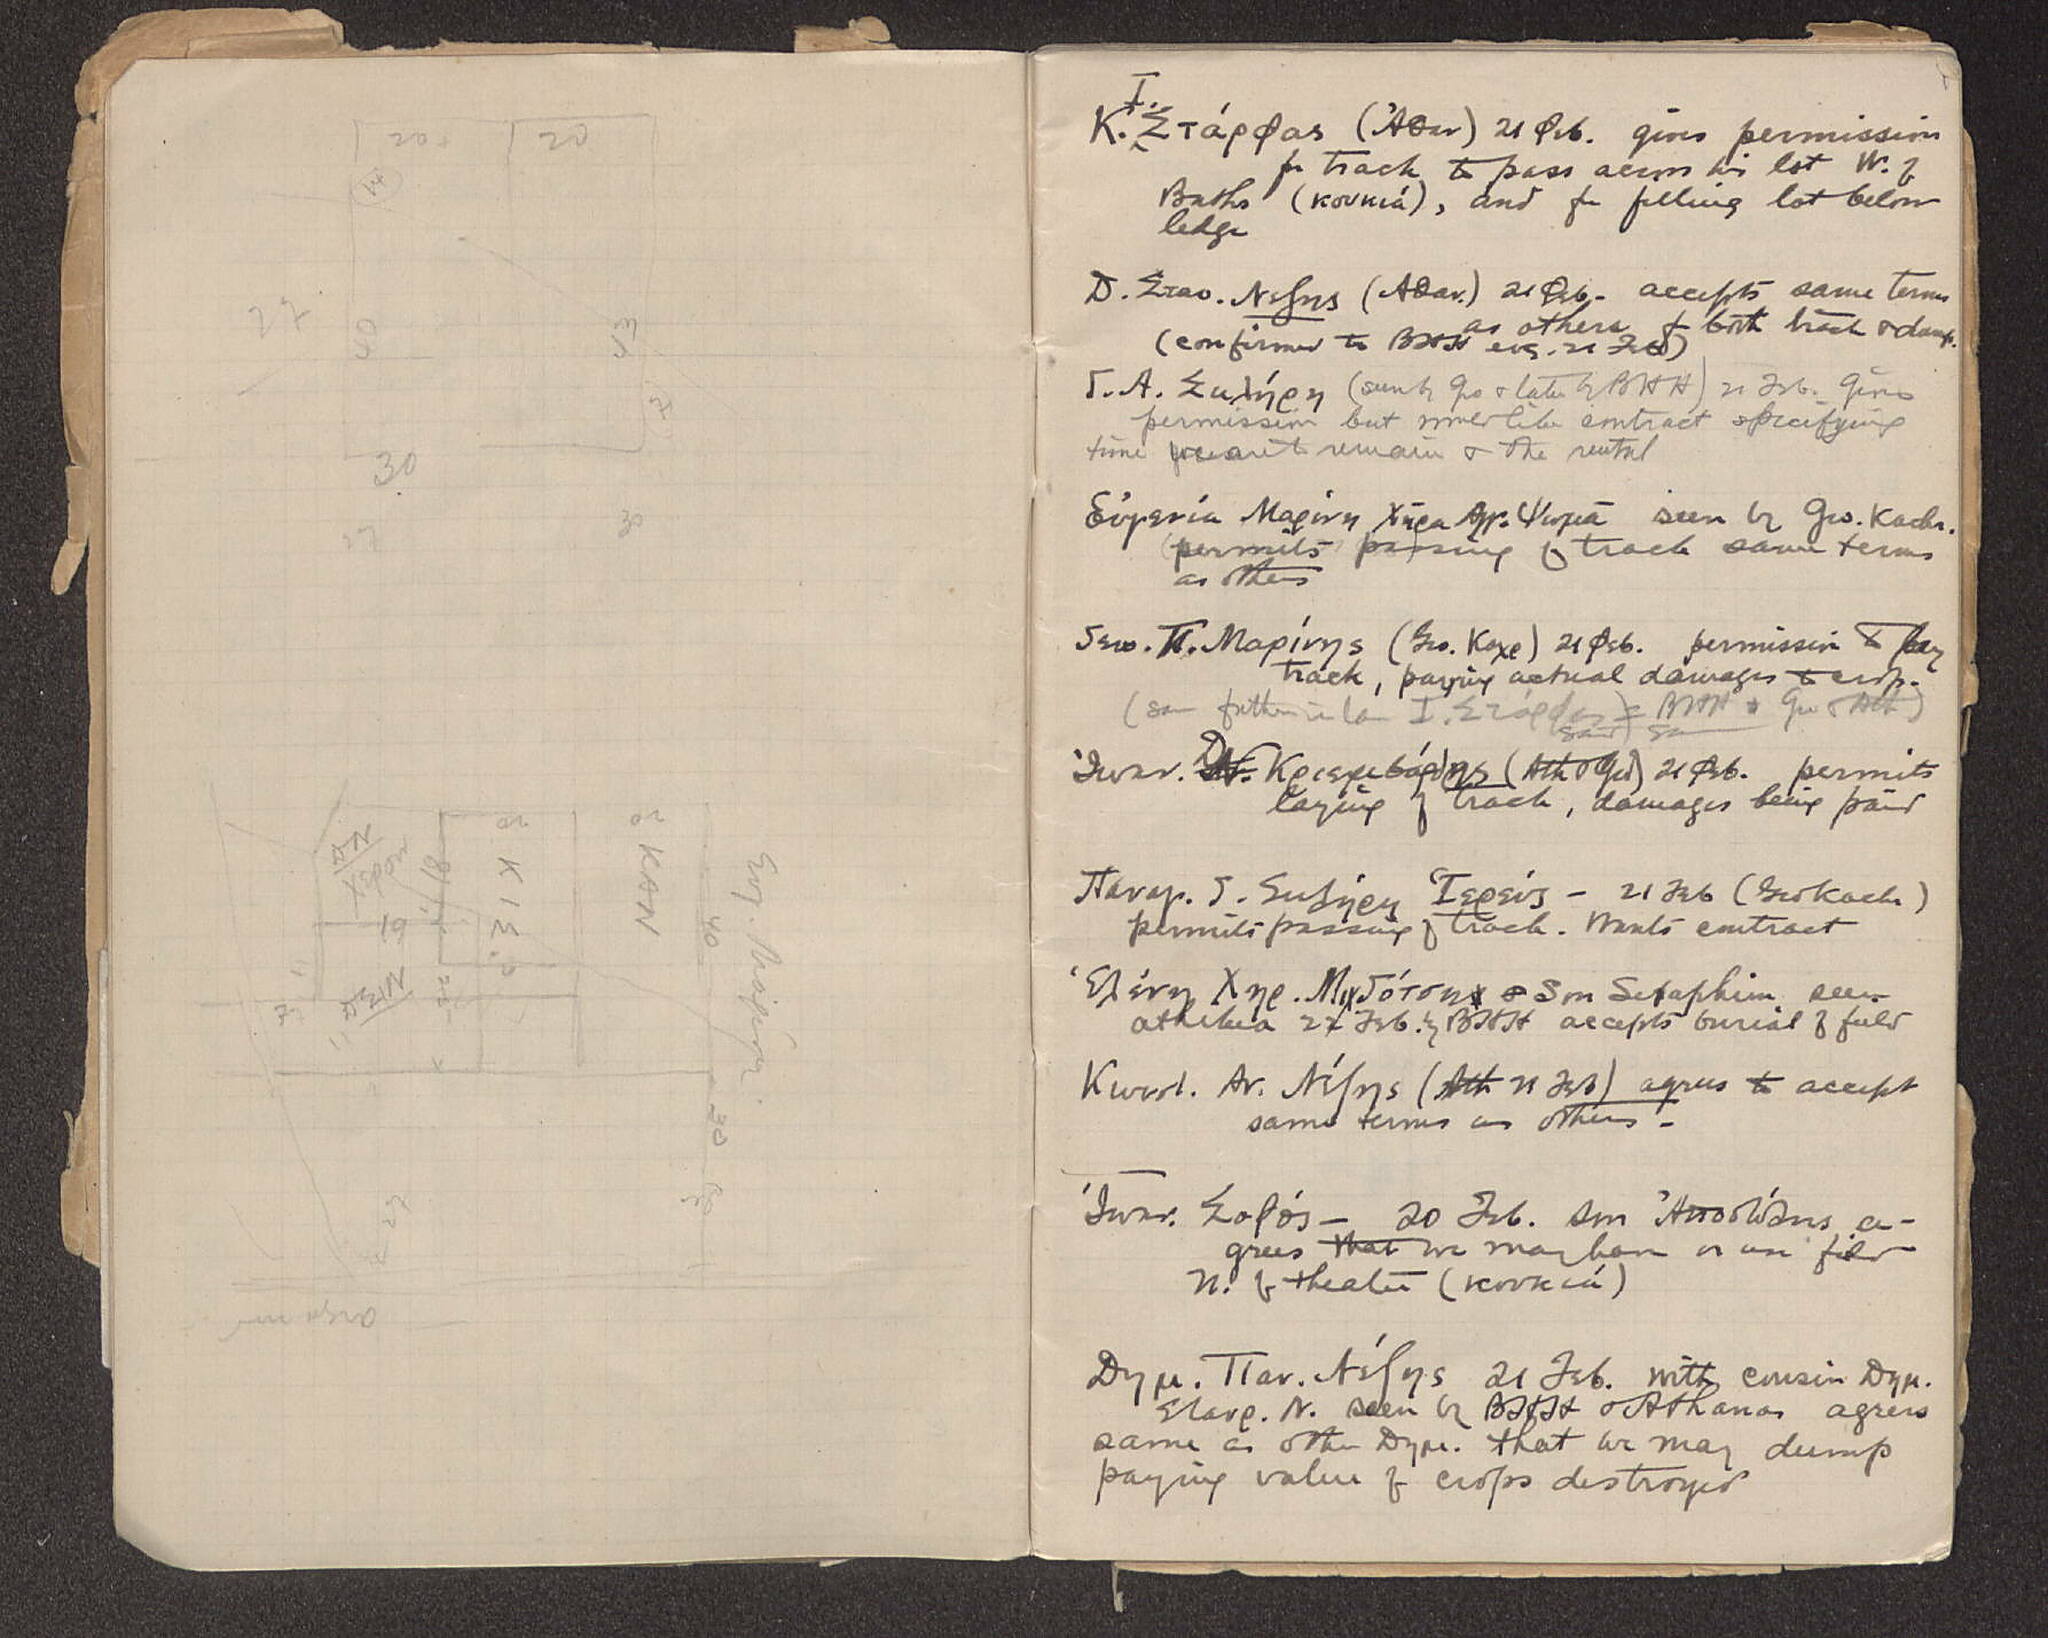 20
20
30
30
30
KAN
ΚΙΣ.
18
19
40
30
Ευγ. Μαρίνη
Κ. Ι. Στάρφας (Ἀθαν) 21 Φεβ. gives permission
for track to pass across his lot W. of
Baths (κουκιά), and for filling lot below
ledge
D. Σταυ. Νέζης (Αθαν.) 21 Φεβ. accepts same terms
as others for both track & dump.
(confirmed to BHH evg. 21 Feb)
Γ. Α. Σκλήρη (seen by Geo & later by BHH) 21 Feb. Gives
permission but would like contract specifying
time remain & the rental
Εὐγενία Μαρίνη Χήρα Ψωμᾶ seen by Geo. Kachr.
permits passing of track same terms
as others
Γεω. Π. Μαρίνης (Geo. Καχρ) 21 Φεβ. permission to lay
track, paying actual damages to crop.
(saw father in law Ι. Στάρφας BHH & Geo & Ath)
Ἰωαν. D. (Ath & Geo) 21 Φεβ. permits
laying of track, damages being paid
Παναγ. Γ. Σκλήρη Ἱερεύς – 21 Feb (Geo Kachr)
permits passing of track. Wants contract
Ἑλένη Χηρ. & son Seraphim seen
22 Feb. by BHH accepts burial of field
Κωνστ. Αν. Νέζης (Ath 21 Feb) agrees to accept
same terms as others –
Ἰωαν. Σοφός – 20 Feb. son Ἀποστόλης a-
grees that we may have or use field
N. of theatre (κουκιά)
Δημ. Παν. Νέζης 21 Feb. with cousin Δημ.
Σταυρ. Ν. seen by BHH & Athanas agrees
same as other Δημ. that we may dump
paying value of crops destroyed